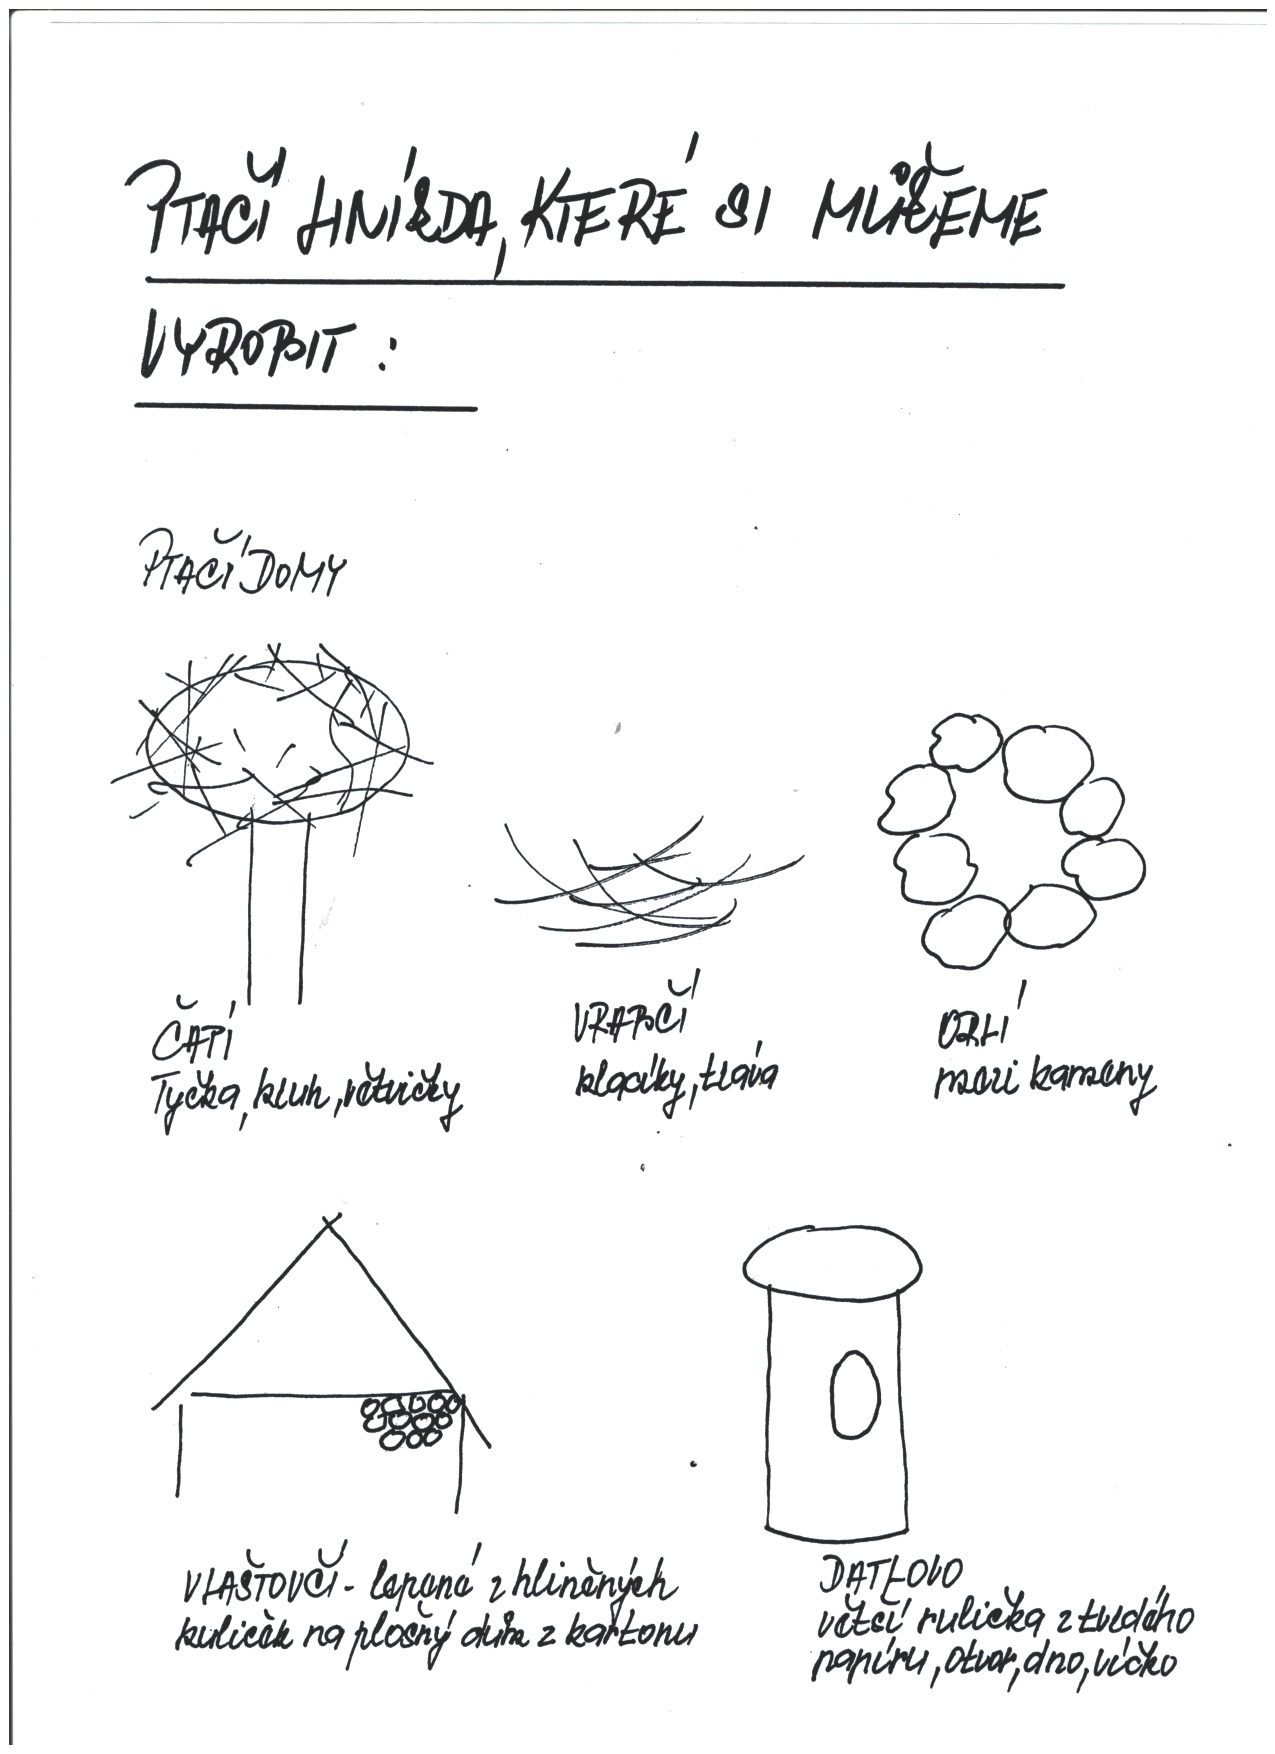 PTAČÍ HNÍZDA, KTERÉ SI MŮŽEME
VYROBIT :
PTAČÍ DOMY
ČAPÍ
Tyčka, kruh, větvičky
VRABČÍ
klacíky, tráva
ORLÍ
mezi kameny
VLAŠTOVČÍ - lepené z hliněných
kuliček na plošný dům z kartonu
DATLOVO
větší rulička z tvrdého
papíru, otvor, dno, víčko